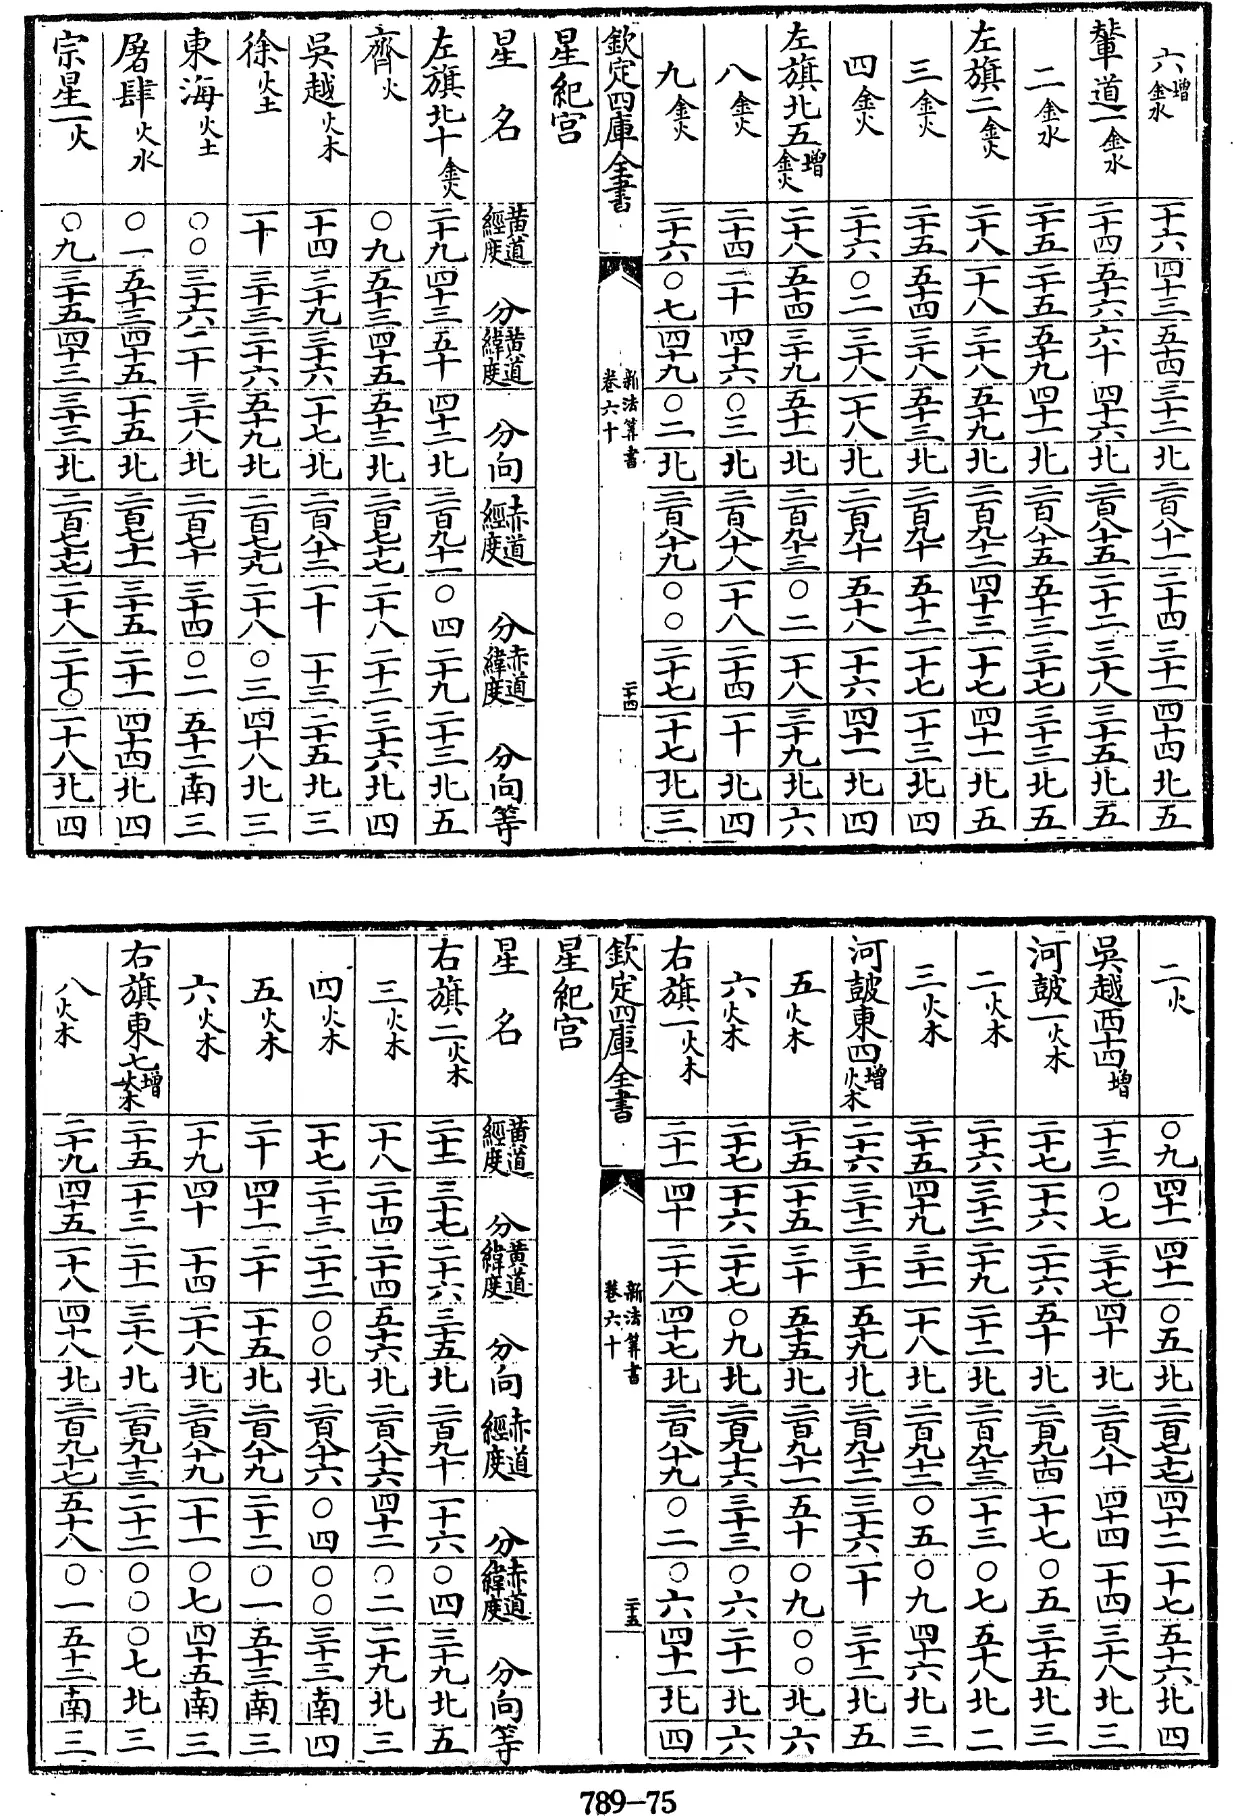 六增金水 二十六 四十三 五十四 三十二 北 二百八十一 二十四 三十一 四十四 北 五
輦道一金水 二十四 五十六 六十 四十六 北 二百八十五 二十二 三十八 三十五 北 五
二金水 二十五 二十五 五十九 四十一 北 二百八十五 五十三 三十七 三十三 北 五
左旗二金火 二十八 一十八 三十八 五十九 北 二百九十二 四十三 一十七 四十一 北 五
三金火 二十五 五十四 三十八 五十三 北 二百九十 五十二 一十七 一十三 北 四
四金火 二十六 〇二 三十八 一十八 北 二百九十 五十八 一十六 四十一 北 四
左旗北五增金火 二十八 五十四 三十九 五十一 北 二百九十三 〇二 一十八 三十九 北 六
八金火 二十四 二十 四十六 〇三 北 二百八十八 一十八 二十四 一十 北 四
九金火 二十六 〇七 四十九 〇二 北 二百八十九 〇〇 二十七 一十七 北 三
欽定四庫全書 新法算書 卷六十 二十四
星紀宮
星名 黃道經度 分 黃道緯度 分 向 赤道經度 分 赤道緯度 分 向 等
左旗北十金火 二十九 四十三 五十 四十二 北 二百九十一 〇四 二十九 二十三 北 五
齊火 〇九 五十三 四十五 五十三 北 二百七十七 二十八 二十二 三十六 北 四
吳越火木 一十四 三十九 三十六 一十七 北 二百八十二 一十 一十三 二十五 北 三
徐火土 一十 三十三 二十六 五十九 北 二百七十九 二十八 〇三 四十八 北 三
東海火土 〇〇 三十六 二十 三十八 北 二百七十 三十四 〇二 五十二 南 三
屠肆火水 〇一 五十三 四十五 一十五 北 二百七十一 三十五 二十一 四十四 北 四
宗星一火 〇九 三十五 四十三 三十三 北 二百七十七 二十八 二十〇 一十八 北 四
二火 〇九 四十一 四十一 〇五 北 二百七十七 四十二 一十七 五十六 北 四
吳越西十四增 一十三 〇七 三十七 四十 北 二百八十 四十四 一十四 三十八 北 三
河鼓一火木 二十七 一十六 二十六 五十 北 二百九十四 一十七 〇五 三十五 北 三
二火木 二十六 三十二 二十九 二十二 北 二百九十三 一十三 〇七 五十八 北 二
三火木 二十五 四十九 三十一 一十八 北 二百九十二 〇五 〇九 四十六 北 三
河鼓東四增火木 二十六 三十二 三十一 五十九 北 二百九十二 三十六 一十 三十二 北 五
五火木 二十五 一十五 三十 五十五 北 二百九十一 五十 〇九 〇〇 北 六
六火木 二十七 一十六 二十七 〇九 北 二百九十六 三十三 〇六 二十一 北 六
右旗一火木 二十一 四十 二十八 四十七 北 二百八十九 〇二 〇六 四十一 北 四
欽定四庫全書 新法算書 卷六十 二十五
星紀宮
星名 黃道經度 分 黃道緯度 分 向 赤道經度 分 赤道緯度 分 向 等
右旗二火木 二十二 三十七 二十六 三十五 北 二百九十 一十六 〇四 三十九 北 五
三火木 一十八 二十四 二十四 五十六 北 二百八十六 四十二 〇二 二十九 北 三
四火木 一十七 二十三 二十二 〇〇 北 二百八十六 〇四 〇〇 三十三 南 四
五火木 二十 四十一 二十 一十五 北 二百八十九 二十二 〇一 五十三 南 三
六火木 一十九 四十 一十四 二十八 北 二百八十九 一十一 〇七 四十五 南 三
右旗東七增火木 二十五 一十三 二十一 三十八 北 二百九十三 二十二 〇〇 〇七 北 三
八火木 二十九 四十五 一十八 四十八 北 二百九十七 五十八 〇一 五十二 南 三
789-75